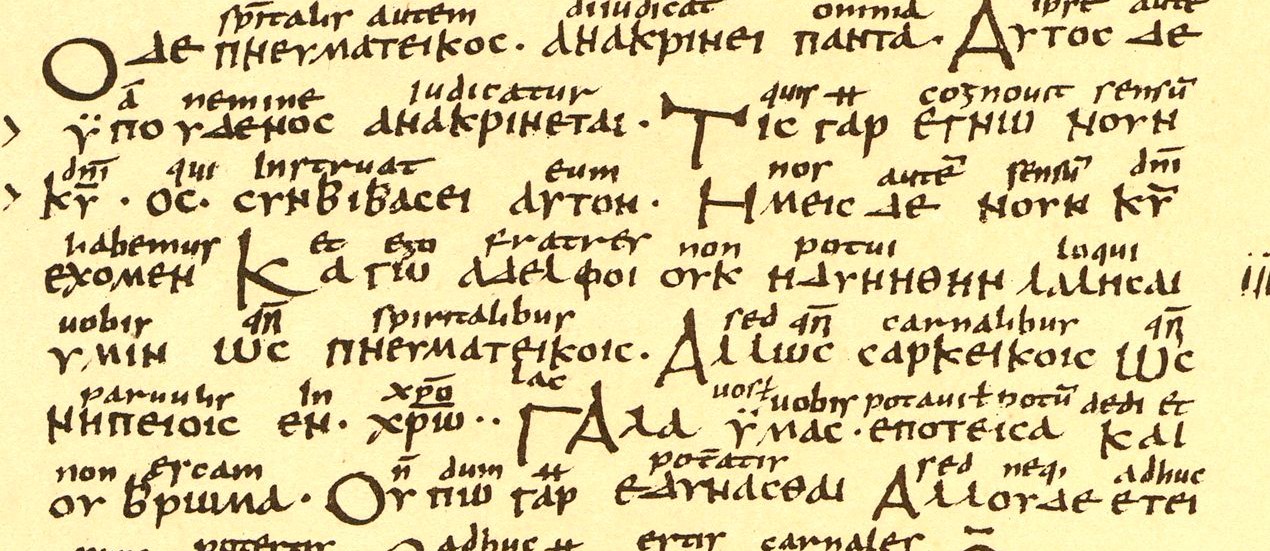 sp̅italis autem diiudicat omnia ipse aute
Ο ΔΕ ΠΝΕΥΜΑΤΕΙΚΟС· ΑΝΑΚΡΙΝΕΙ ΠΑΝΤΑ· ΑΥΤΟС ΔΕ
a̅ nemine iudicatur quis ⧺ cognouit sensu̅
ΫΠΟΥΔΕΝΟС ΑΝΑΚΡΙΝΕΤΑΙ· ΤΙС ΓΑΡ ΕΓΝΩ ΝΟΥΝ
dn̅i qui instruat eum nos aute̅ sensu̅ dn̅i
Κ̅Υ̅· ΟС· СΥΝΒΙΒΑСΕΙ ΑΥΤΟΝ· ΗΜΕΙС ΔΕ ΝΟΥΝ Κ̅Υ̅
habemus et ego fratres non potui loqui
ΕΧΟΜΕΝ ΚΑΓΩ ΑΔΕΛΦΟΙ ΟΥΚ ΗΔΥΝΗΘΗΝ ΛΑΛΗСΑΙ
uobis qn̅ spiritalibus sed qn̅ carnalibus qn̅
ΥΜΙΝ ΩС ΠΝΕΥΜΑΤΕΙΚΟΙС· ΑΛΛΩС СΑΡΚΕΙΚΟΙС ΩС
paruulis in xp̅o lac uost uobis potaui ł potu̅ dedi et
ΝΗΠΕΙΟΙС ΕΝ· ΧΡ̅Ω·· ΓΑΛΑ ΫΜΑС· ΕΠΟΤΕΙСΑ ΚΑΙ
non escam n̅ dum ⧺ pot̅atis sed neq; adhuc
ΟΥ ΒΡΩΜΑ· ΟΥΠΩ ΓΑΡ ΕΔΥΝΑСΘΑΙ ΑΛΛΟΥΔΕ ΕΤΕΙ
potestis adhuc ⧺ estis carnales